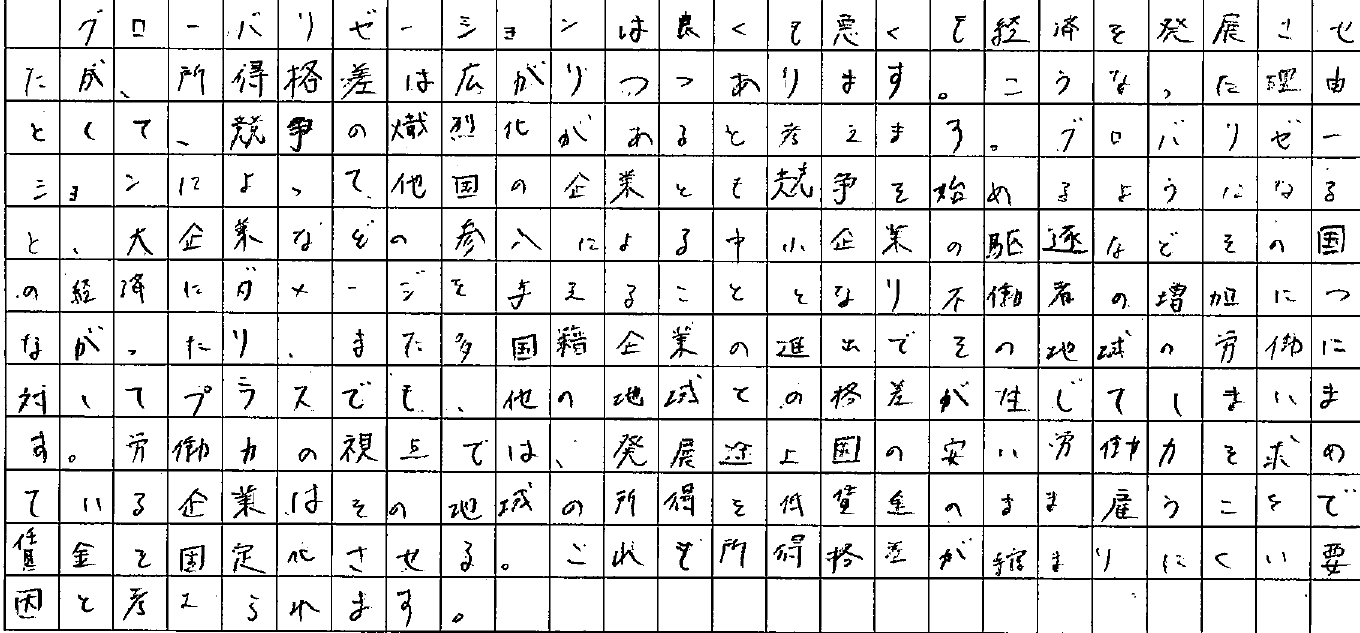 グローバリゼーションは良くも悪くも経済を発展させ
たが、所得格差は広がりつつあります。こうなった理由
として、競争の熾烈化があると考えます。グロバリゼー
ションによって他国の企業とも競争を始めるようになる
と、大企業などの参入による中小企業の駆逐などその国
の経済にダメージを与えることとなり不働者の増加につ
ながったり、また多国籍企業の進出でその地域の労働に
対してプラスでも、他の地域との格差が生じてしまいま
す。労働力の視点では、発展途上国の安い労働力を求め
ている企業はその地域の所得を低賃金のまま雇うことで
賃金を固定化させる。これも所得格差が縮まりにくい要
因と考えられます。